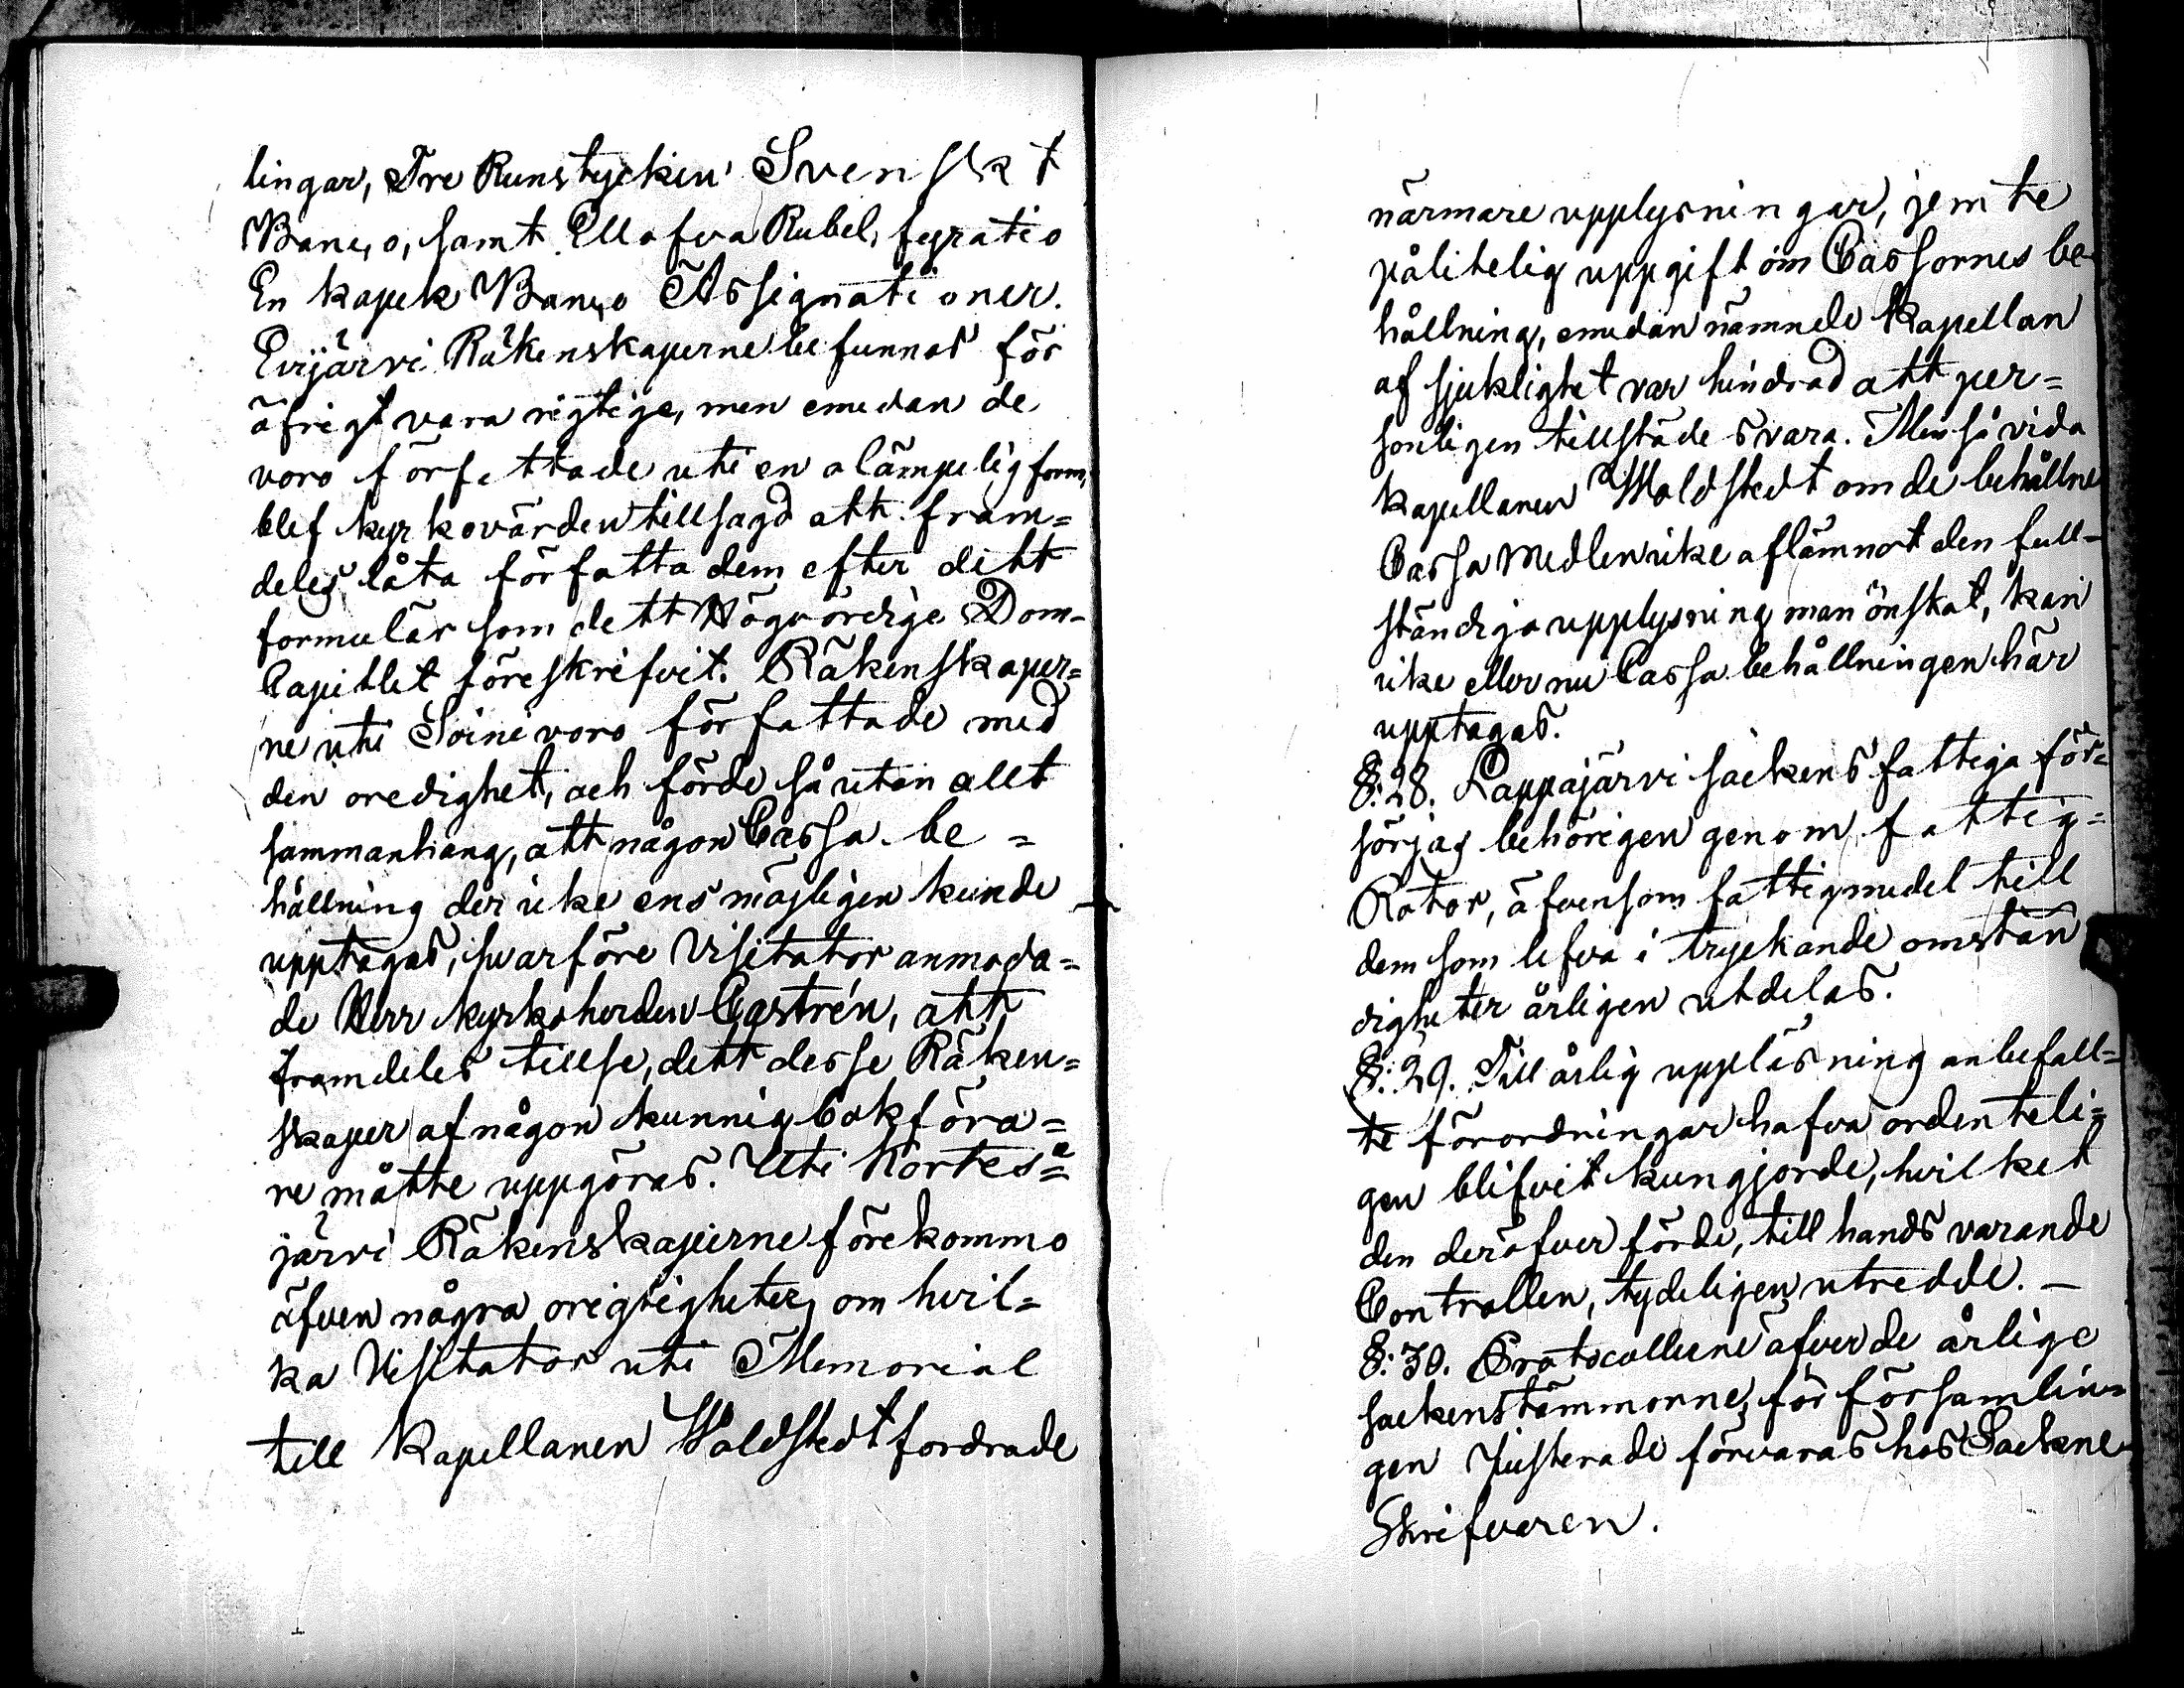 lingar, Tre Runstycken Svenskt
Banco, samt Ellofva Rubel, fyratio
En kapek Banco Assignationer.
Evijärvi Räkenskaperne befunnos för
öfrigt vara rigtige, men emedan de
voro författade uti en olämpelig form,
blef kyrkovärden tillsagd att fram=
deles låta författa dem efter ditt
formulär som dett Högvördige Dom-
Capitlet föreskrifvit. Räkenskaper=
ne uti Soini voro författade med
den oredighet, och förde så utan allt
sammanhang, att någon Cassa be=
hållning der icke ens möjligen kunde
upptagas, hvarföre Visitator anmoda=
de Herr kyrkoherden Castrén, att
framdeles tillse, dett desse Räken=
skaper af någon kunnig bokföra=
re måtte uppgöras. Uti Kortes=
järvi Räkenskaperne förekommo
äfven några origtigheter, om hvil=
ka Visitator uti Memorial
till Kapellanen Woldstedt fordrade
närmare upplysningar, jemte
pålitelig uppgift om Cassornes be-
hållning, emedan nämnde Kapellan
af sjuklighet var hindrad att per=
sonligen tillstädes vara. Men så vida
Kapellanen Woldstedt om de behållne
Cassa Medlen icke aflämnat den full-
ständiga upplysning man önskat, kan
icke eller nu Cassa behållningen här
upptagas.
§: 28. Lappajärvi sockens fattiga för=
sörjas behörigen genom fattig=
Rotor, äfvensom fattigmedel till
dem som lefva i tryckande omstän
digheter årligen utdelas.
§: 29. Till årlig uppläsning anbefall=
te förordningar hafva ordenteli=
gen blifvit kungjorde, hvilket
den deröfver förde, till hands varande
Controllen, tydeligen utredde. —
§: 30. Protocollerne öfver de årlige
sockenstämmorne, för församlin=
gen Justerade förvaras hos Sockne
Skrifvaren.